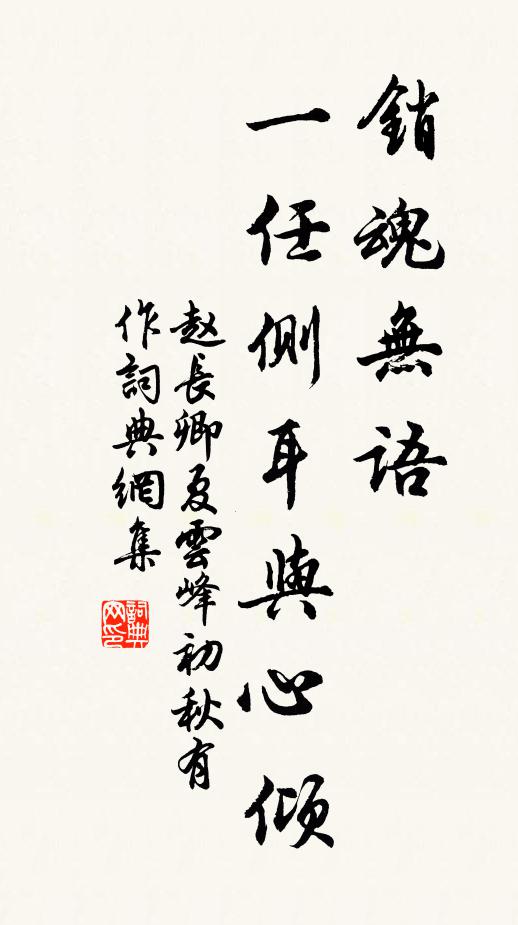 銷魂無語
一任側耳與心傾
赵長卿夏雲峰初秋有
作詞典網集
詞典
网印